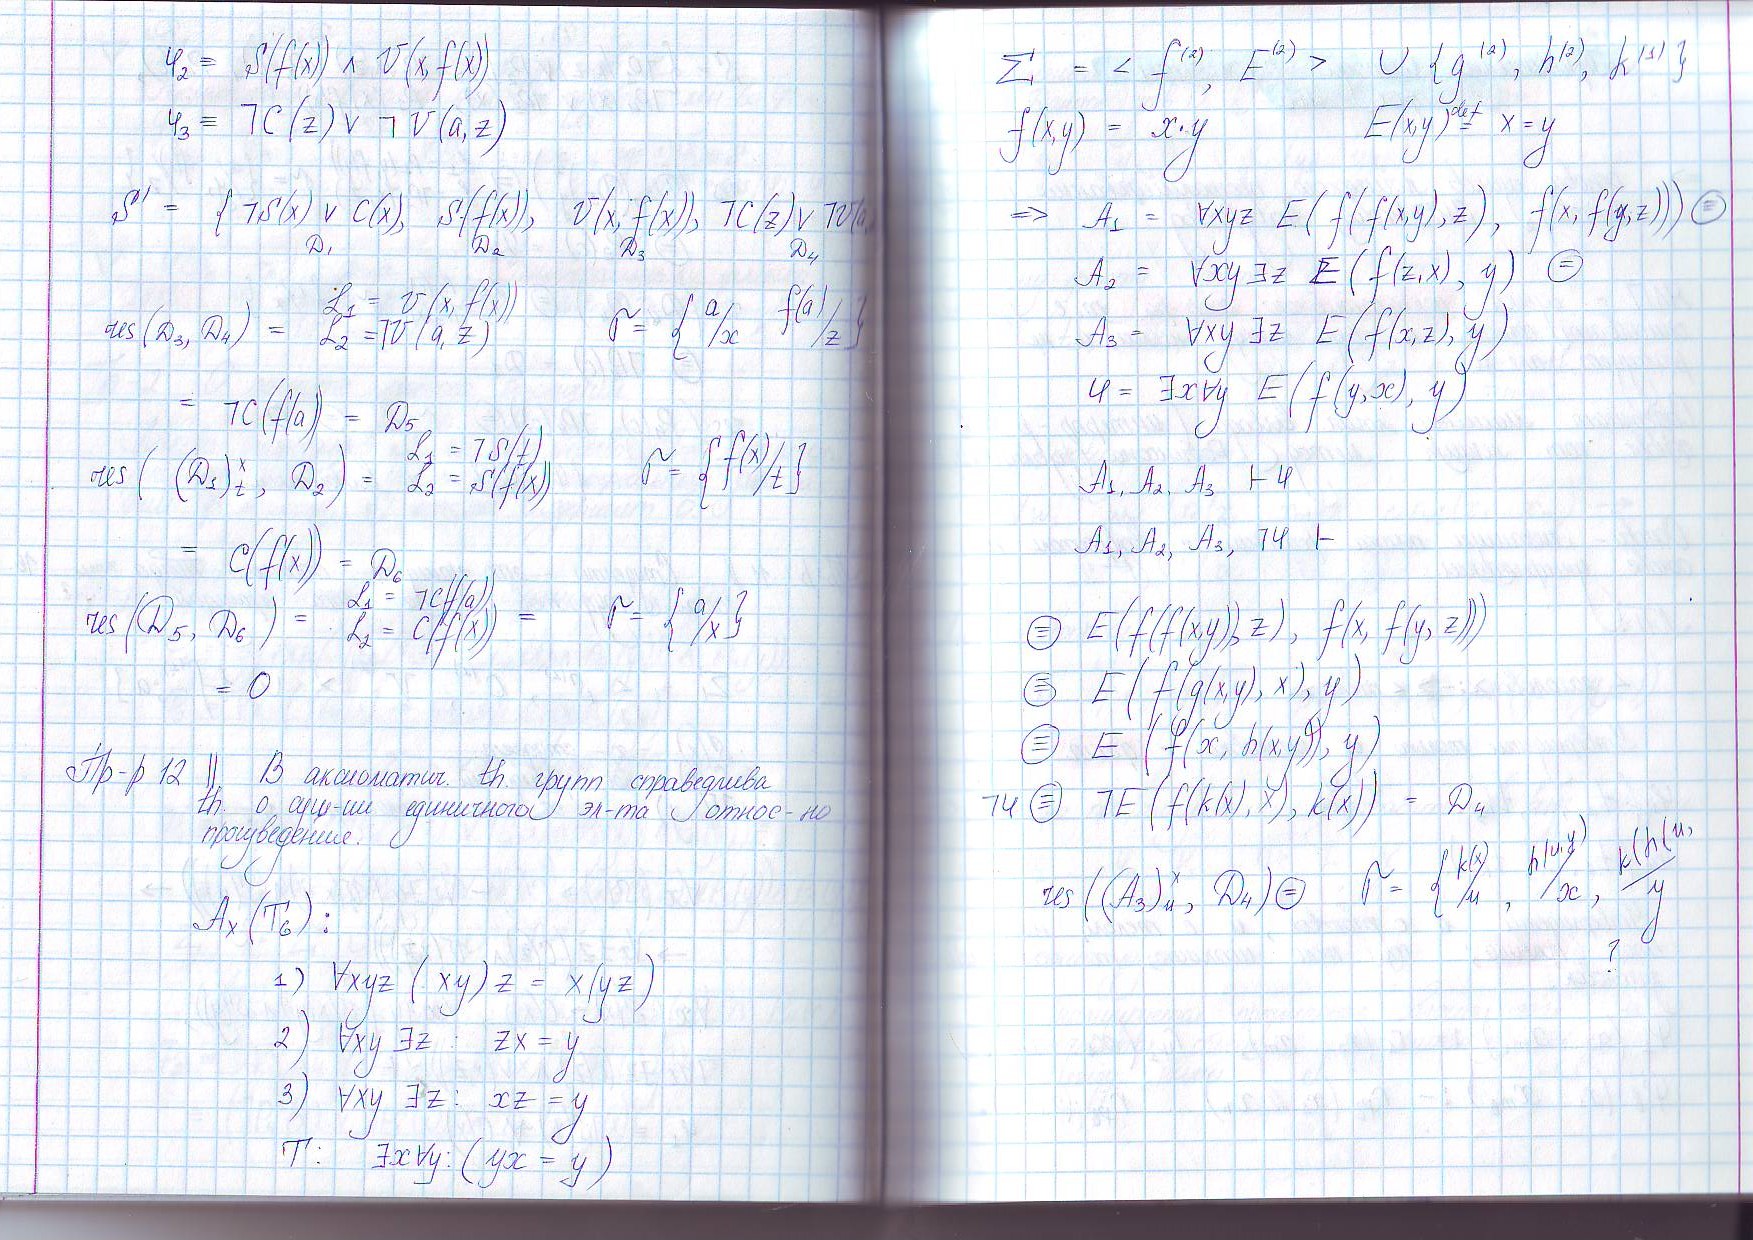 φ₂ = S(f(x)) ∧ V(x, f(x))
φ₃ = ¬C(z) ∨ ¬V(a, z)
S' = {¬S(x) ∨ C(x), S(f(x)), V(x, f(x)), ¬C(z) ∨ ¬V(a,
D₁ D₂ D₃ D₄
L₁ = V(x, f(x))
res(D₃, D₄) = L₂ = ¬V(a, z) σ = {a/x f(a)/z}
= ¬C(f(a)) = D₅
L₁ = ¬S(t)
res((D₁)ˣₜ, D₂) = L₂ = S(f(x)) σ = {f(x)/t}
= C(f(x)) = D₆
L₁ = ¬C(f(a))
res(D₅, D₆) = L₂ = C(f(x)) = σ = {a/x}
= 0
Пр-р 12 || В аксиоматич. th. групп справедлива
th. о сущ-ии единичного эл-та относ-но
произведение.
Ax(T₆):
1) ∀xyz (xy)z = x(yz)
2) ∀xy ∃z : zx = y
3) ∀xy ∃z : xz = y
T: ∃x∀y: (yx = y)
Σ = < f⁽²⁾, E⁽²⁾ > ∪ {g⁽²⁾, h⁽²⁾, k⁽¹⁾}
f(x,y) = x·y E(x,y) def= x = y
=> A₁ = ∀xyz E(f(f(x,y),z), f(x, f(y,z))) ⊜
A₂ = ∀xy ∃z E(f(z,x), y) ⊜
A₃ = ∀xy ∃z E(f(x,z), y)
φ = ∃x∀y E(f(y,x), y)
A₁, A₂, A₃ ⊢ φ
A₁, A₂, A₃, ¬φ ⊢
⊜ E(f(f(x,y)),z), f(x, f(y,z)))
⊜ E(f(g(x,y), x), y)
⊜ E(f(x, h(x,y)), y)
¬φ ⊜ ¬E(f(k(x), x), k(x)) = D₄
res((A₃)ˣᵤ, D₄) ⊜ σ = {k(x)/u, h(u,y)/x, k(h(u,/y
?